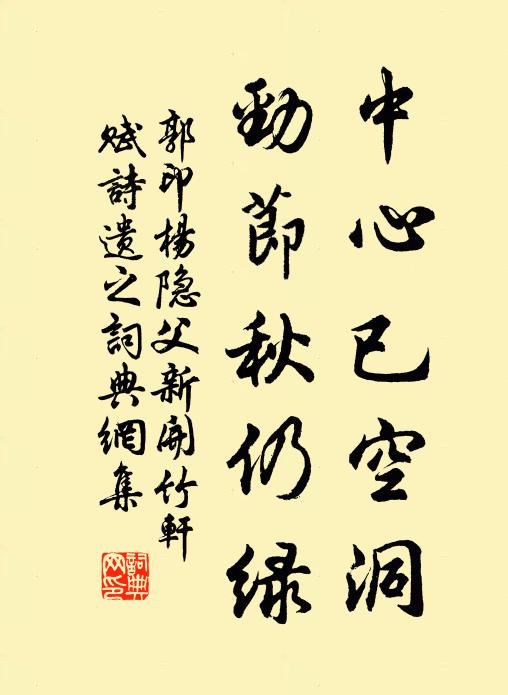 中心已空洞
勁節秋仍绿
郭印楊隐父新開竹軒
赋詩遗之詞典網集
詞典網印